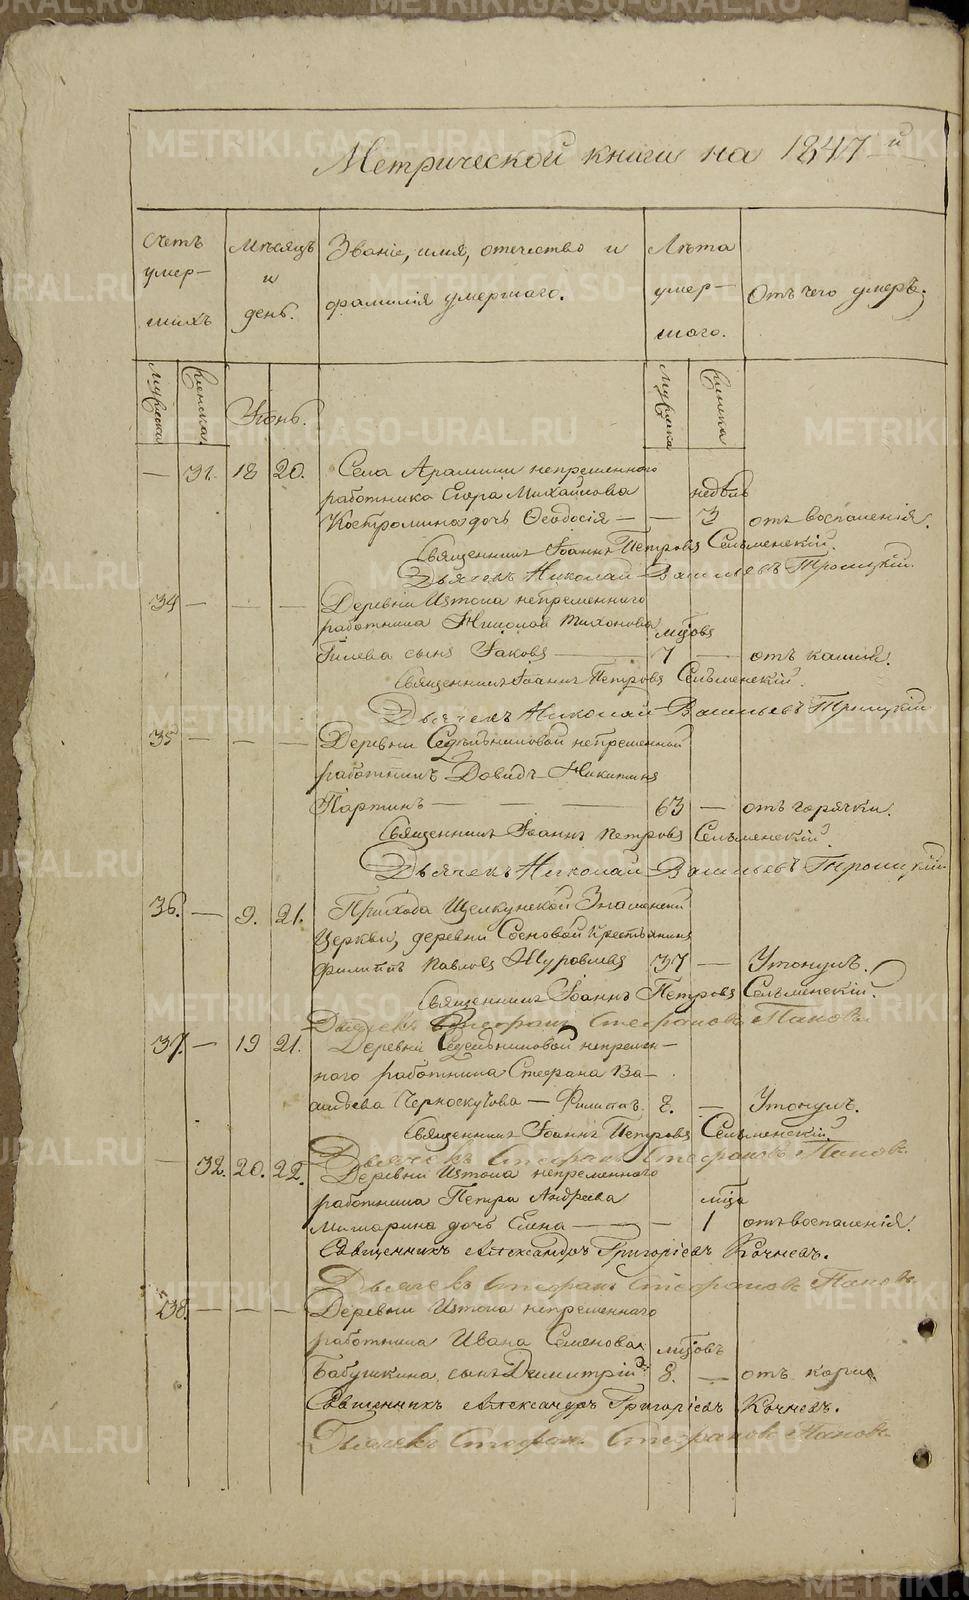 Метрической книги на 1847-й
Счетъ умер-шихъ
Мѣсяцъ и день.
Званіе, имя, отчество и фамилія умершаго.
Лѣта умер-шаго.
Отъ чего умеръ.
Мужеска Женска
Іюнь.
Мужеска Женска
— 31. 18 20. Села Арамили непременного
работника Егора Михайлова недѣль
Костромина дочь Ѳеодосія — — 3 отъ воспаленія.
Священникъ Іоаннъ Петровъ Сельменскій.
Дьячекъ Николай Васильевъ Троицкій.
34 — — — Деревни Истока непременного
работника Николая Тихонова мцовъ
Гилева сынъ Іаковъ — 7 — отъ кашля.
Священникъ Іоаннъ Петровъ Сельменскій.
Дьячекъ Николай Васильевъ Троицкій
35 — — — Деревни Седельниковой непременной
работникъ Давидъ Никитинъ
Партинъ — — — 63 — отъ горячки.
Священникъ Іоаннъ Петровъ Сельменскій.
Дьячекъ Николай Васильевъ Троицкій
36. — 9. 21. Прихода Щелкунской Знаменской
Церкви, деревни Сосновой крестьянинъ
Филиппъ Павловъ Журовлевъ 37 — Утонулъ.
Священникъ Іоаннъ Петровъ Сельменскій.
Дьячекъ Стефанъ Стефановъ Пановъ
37. — 19 21. Деревни Седельниковой непремен-
ного работника Стефана Ва-
сильева Черноскутова — Филиппъ. 8. — Утонулъ.
Священникъ Іоаннъ Петровъ Сельменскій
Дьячекъ Стефанъ Стефановъ Пановъ
— 32. 20. 22. Деревни Истока непременного
работника Петра Андреева мца
Мишарина дочь Елена — — 1 отъ воспаленія.
Священникъ Александръ Григоріевъ Кочневъ.
Дьячекъ Стефанъ Стефановъ Пановъ
38. — — — Деревни Истока непременного
работника Ивана Семенова мцовъ
Бабушкина сынъ Димитрій 8. — отъ кори
Священникъ Александръ Григоріевъ Кочневъ.
Дьячекъ Стефанъ Стефановъ Пановъ
METRIKI.GASO-URAL.RU